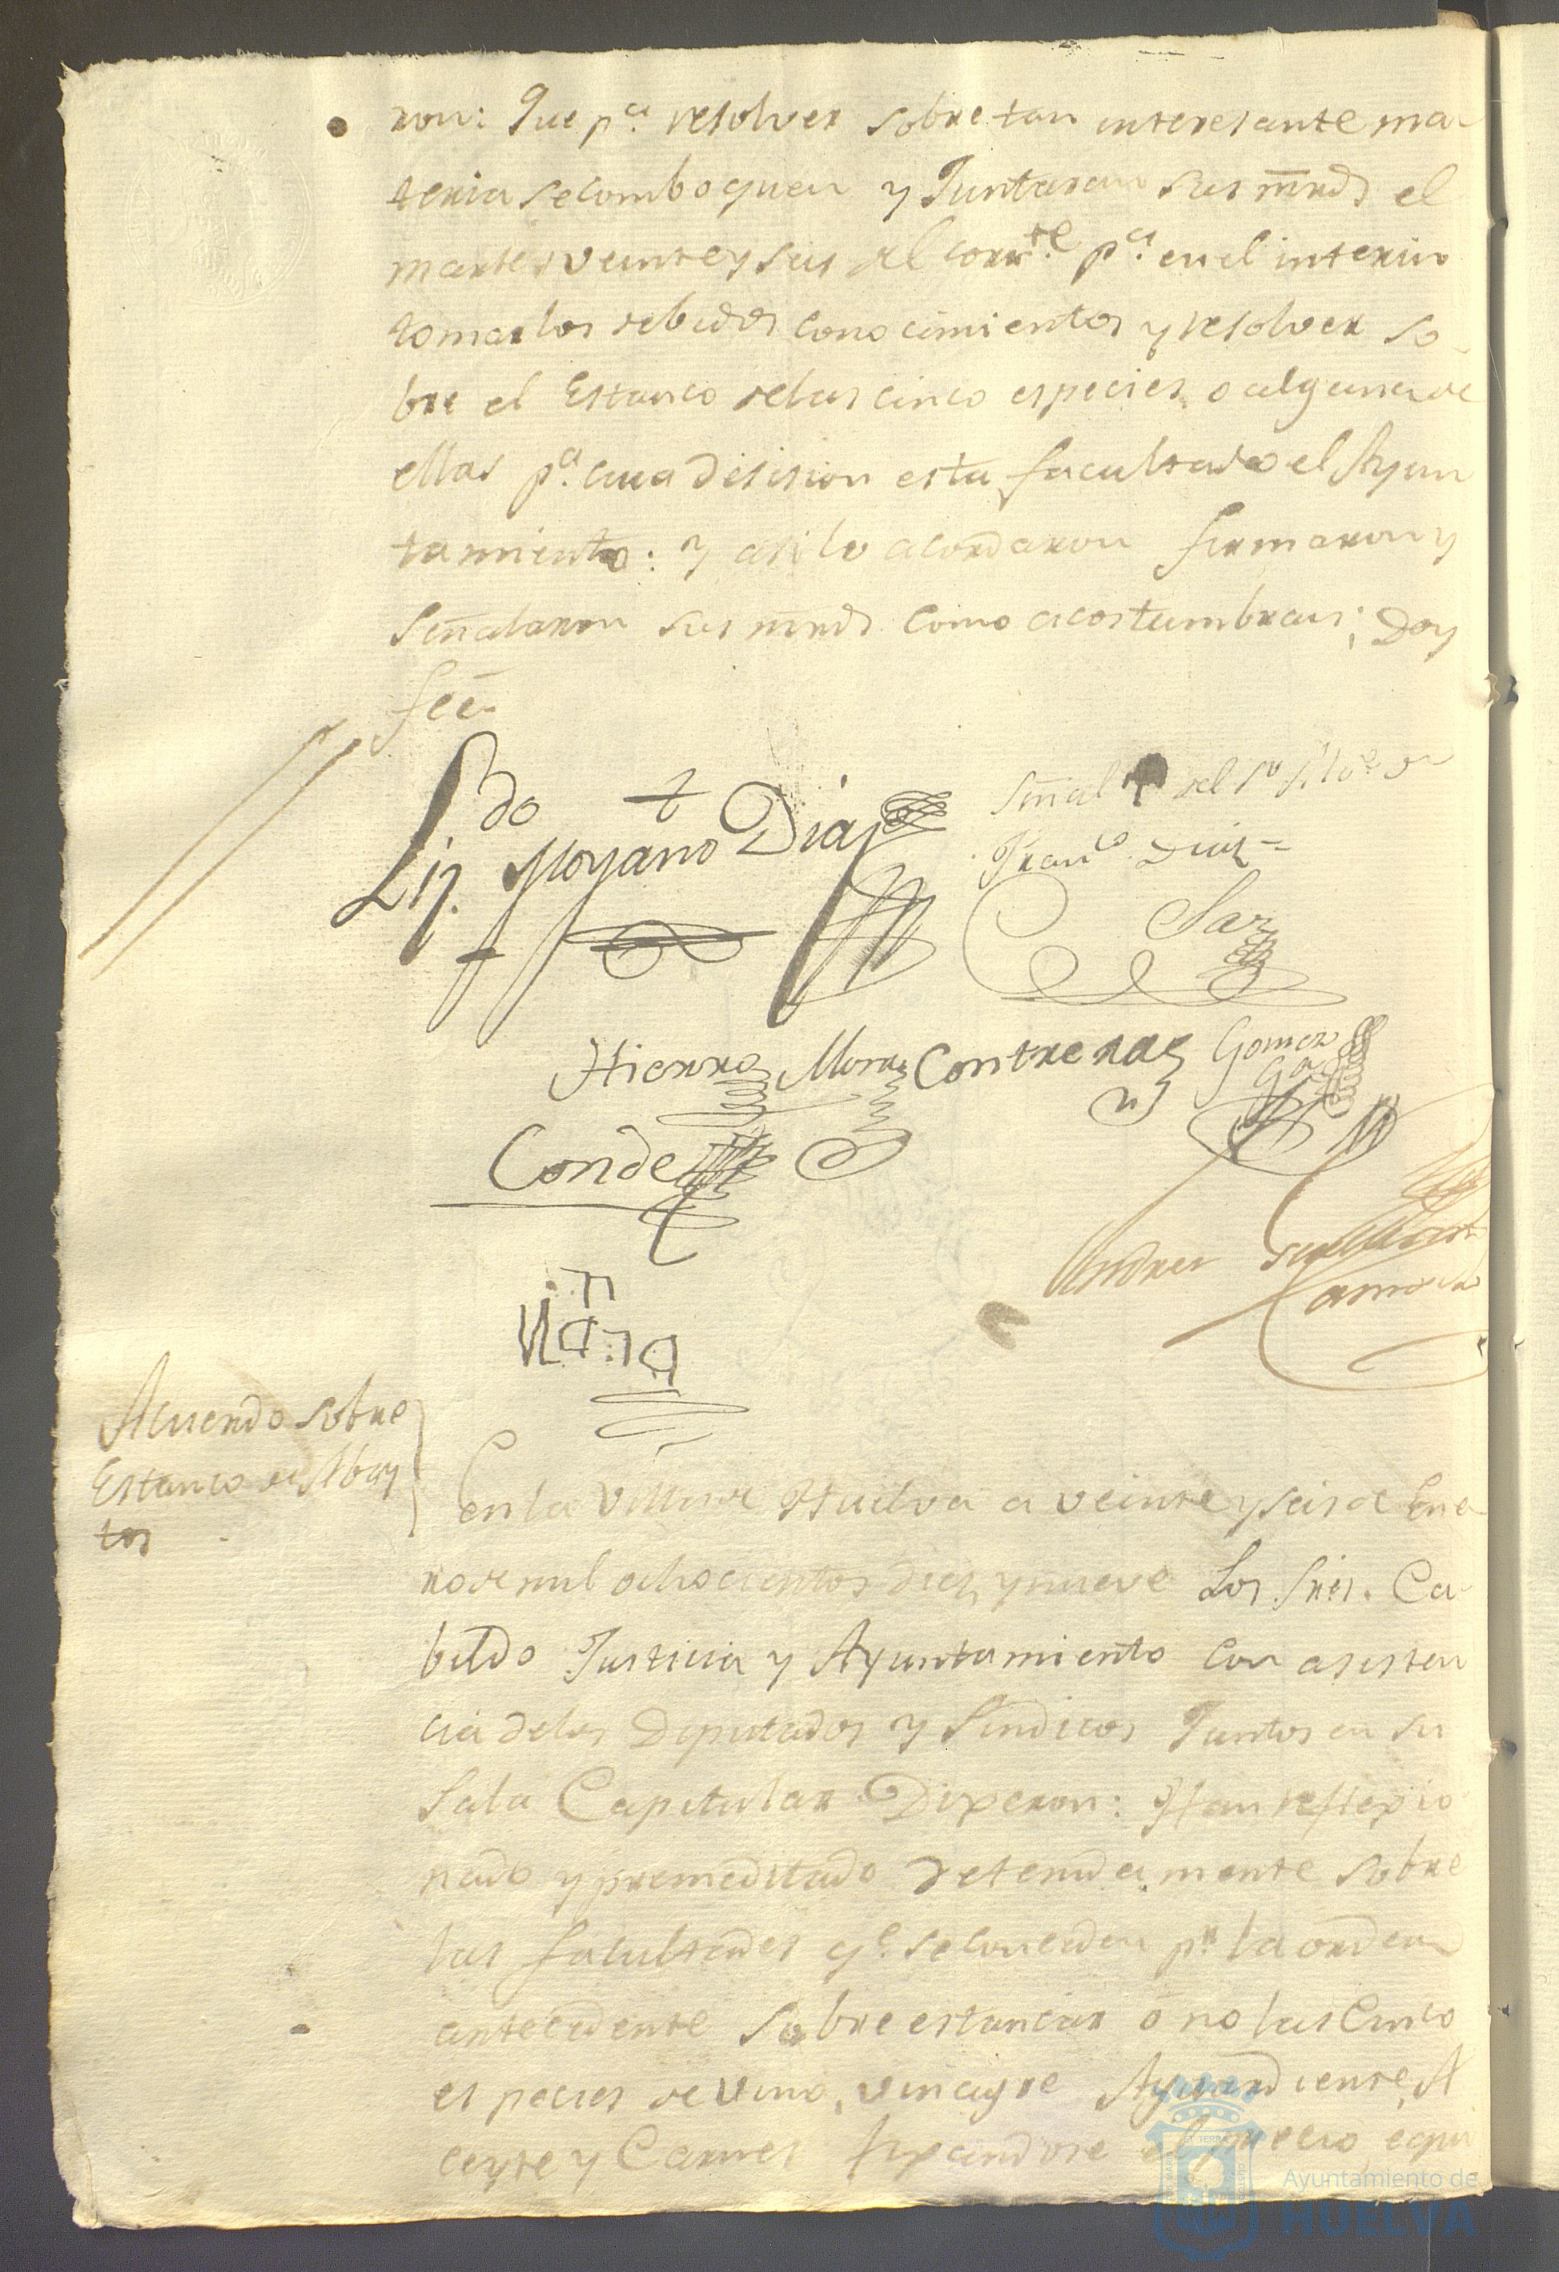 ron: Que p.ª resolver sobre tan interesante ma-
teria se comboquen y Juntaran sus mrds el
martes veinte y seis del corr.te p.ª en el interin
tomar los debidos conocimientos y resolver so-
bre el Estanco de las cinco especies, o alguna de
ellas p.ª cuia desision esta facultado el Ayun
tamiento: y asi lo acordaron firmaron y
Señalaron sus mrds como acostumbran; Doy
feé
Liz.do Moyano Diaz
Señal del
Fran.co Diaz =
Saz
Hierro Mora Contreras Gomez
Conde
Viana
Andres
Camacho
Acuerdo sobre
Estanco de Abas
tos
En la Villa de Huelva a veinte y seis de Ene
ro de mil ochocientos diez y nueve Los Sres. Ca-
bildo Justicia y Ayuntamiento con asisten
cia delos Diputados y Sindicos Juntos en su
Sala Capitular Dixeron: Han reflexio
nado y premeditado detenidamente sobre
las facultades q.e se conceden p.r la orden
antecedente sobre estancar ó no las Cinco
especies de Vino, vinagre Aguardiente, A
ceyte y Carnes fixandose el precio equi
Ayuntamiento de
HUELVA